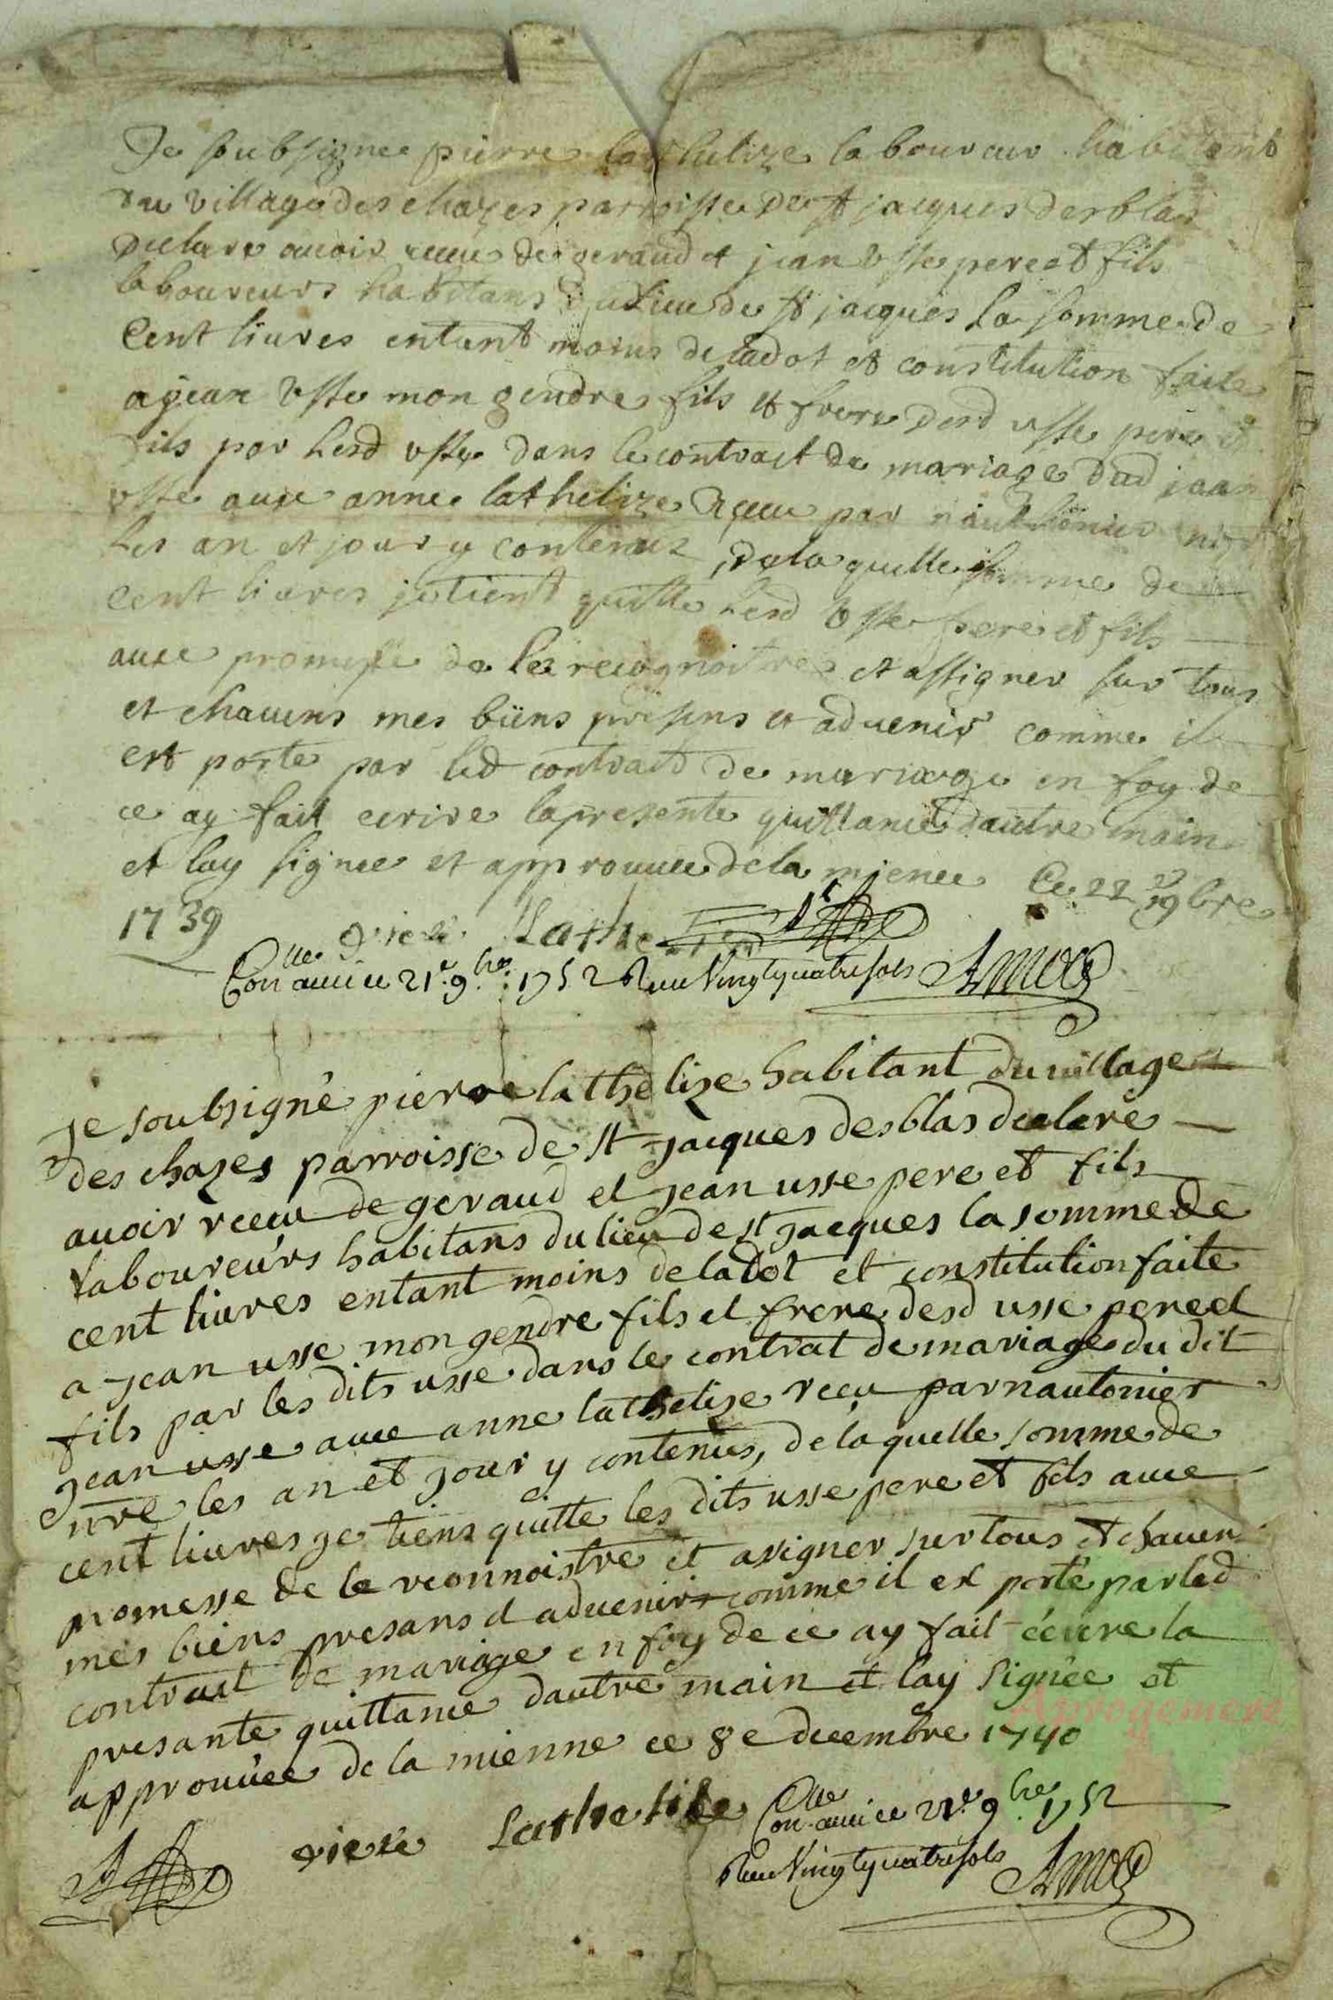 Je subsignee pierre lathelize laboureur habitant
du village des chazes parroisse de st jacques desblas
declare avoir receu de geraud et jean usse pere et fils
laboureurs habitans du lieu de st jacques la somme de
Cent livres entant moins de ladot et constitution faite
a jean usse mon gendre fils et frere desd usse pere et
fils par lesd usse dans le contract de mariage dud jean
usse avec anne lathelize Receu par nautonier nore
les an et jour y contenus, de laquelle somme de
cent livres je tient quitte lesd usse pere et fils
avec promesse de les recognoitre et assigner sur tous
et chacuns mes biens presens et advenir comme il
est porte par led contract de mariage en foy de
ce ay fait ecrire la presente quittance dautre main
et lay signee et approuvee de la mienee Ce 22 9bre
1739
piere Lathe
Con.lle avec ce 21.e 9.bre 1752 Receu Vingtquatre sols Amoc
je soubsigné pierre lathelize habitant du village
des chazes parroisse de st jacques desblas declare
avoir receu de geraud et jean usse pere et fils
laboureurs habitans du lieu de st jacques la somme de
cent livres entant moins de la dot et constitution faite
a jean usse mon gendre fils et frere desd usse pere et
fils par les dits usse dans le contrat de mariage du dit
jean usse avec anne lathelize recu par nautonier
nre les an et jour y contenus, de laquelle somme de
cent livres je tiens quitte les dits usse pere et fils avec
promesse de le reconnoistre et asigner sur tous et chacun
mes biens presans et advenir comme il est porté par led
contract de mariage en foy de ce ay fait écrire la
presante quittance dautre main et lay signée et
approuvée de la mienne ce 8e decembre 1740
piere Lathelize
Con.lle avec ce 21.e 9.bre 1752
Receu Vingtquatre sols Amoc
Aprogemere